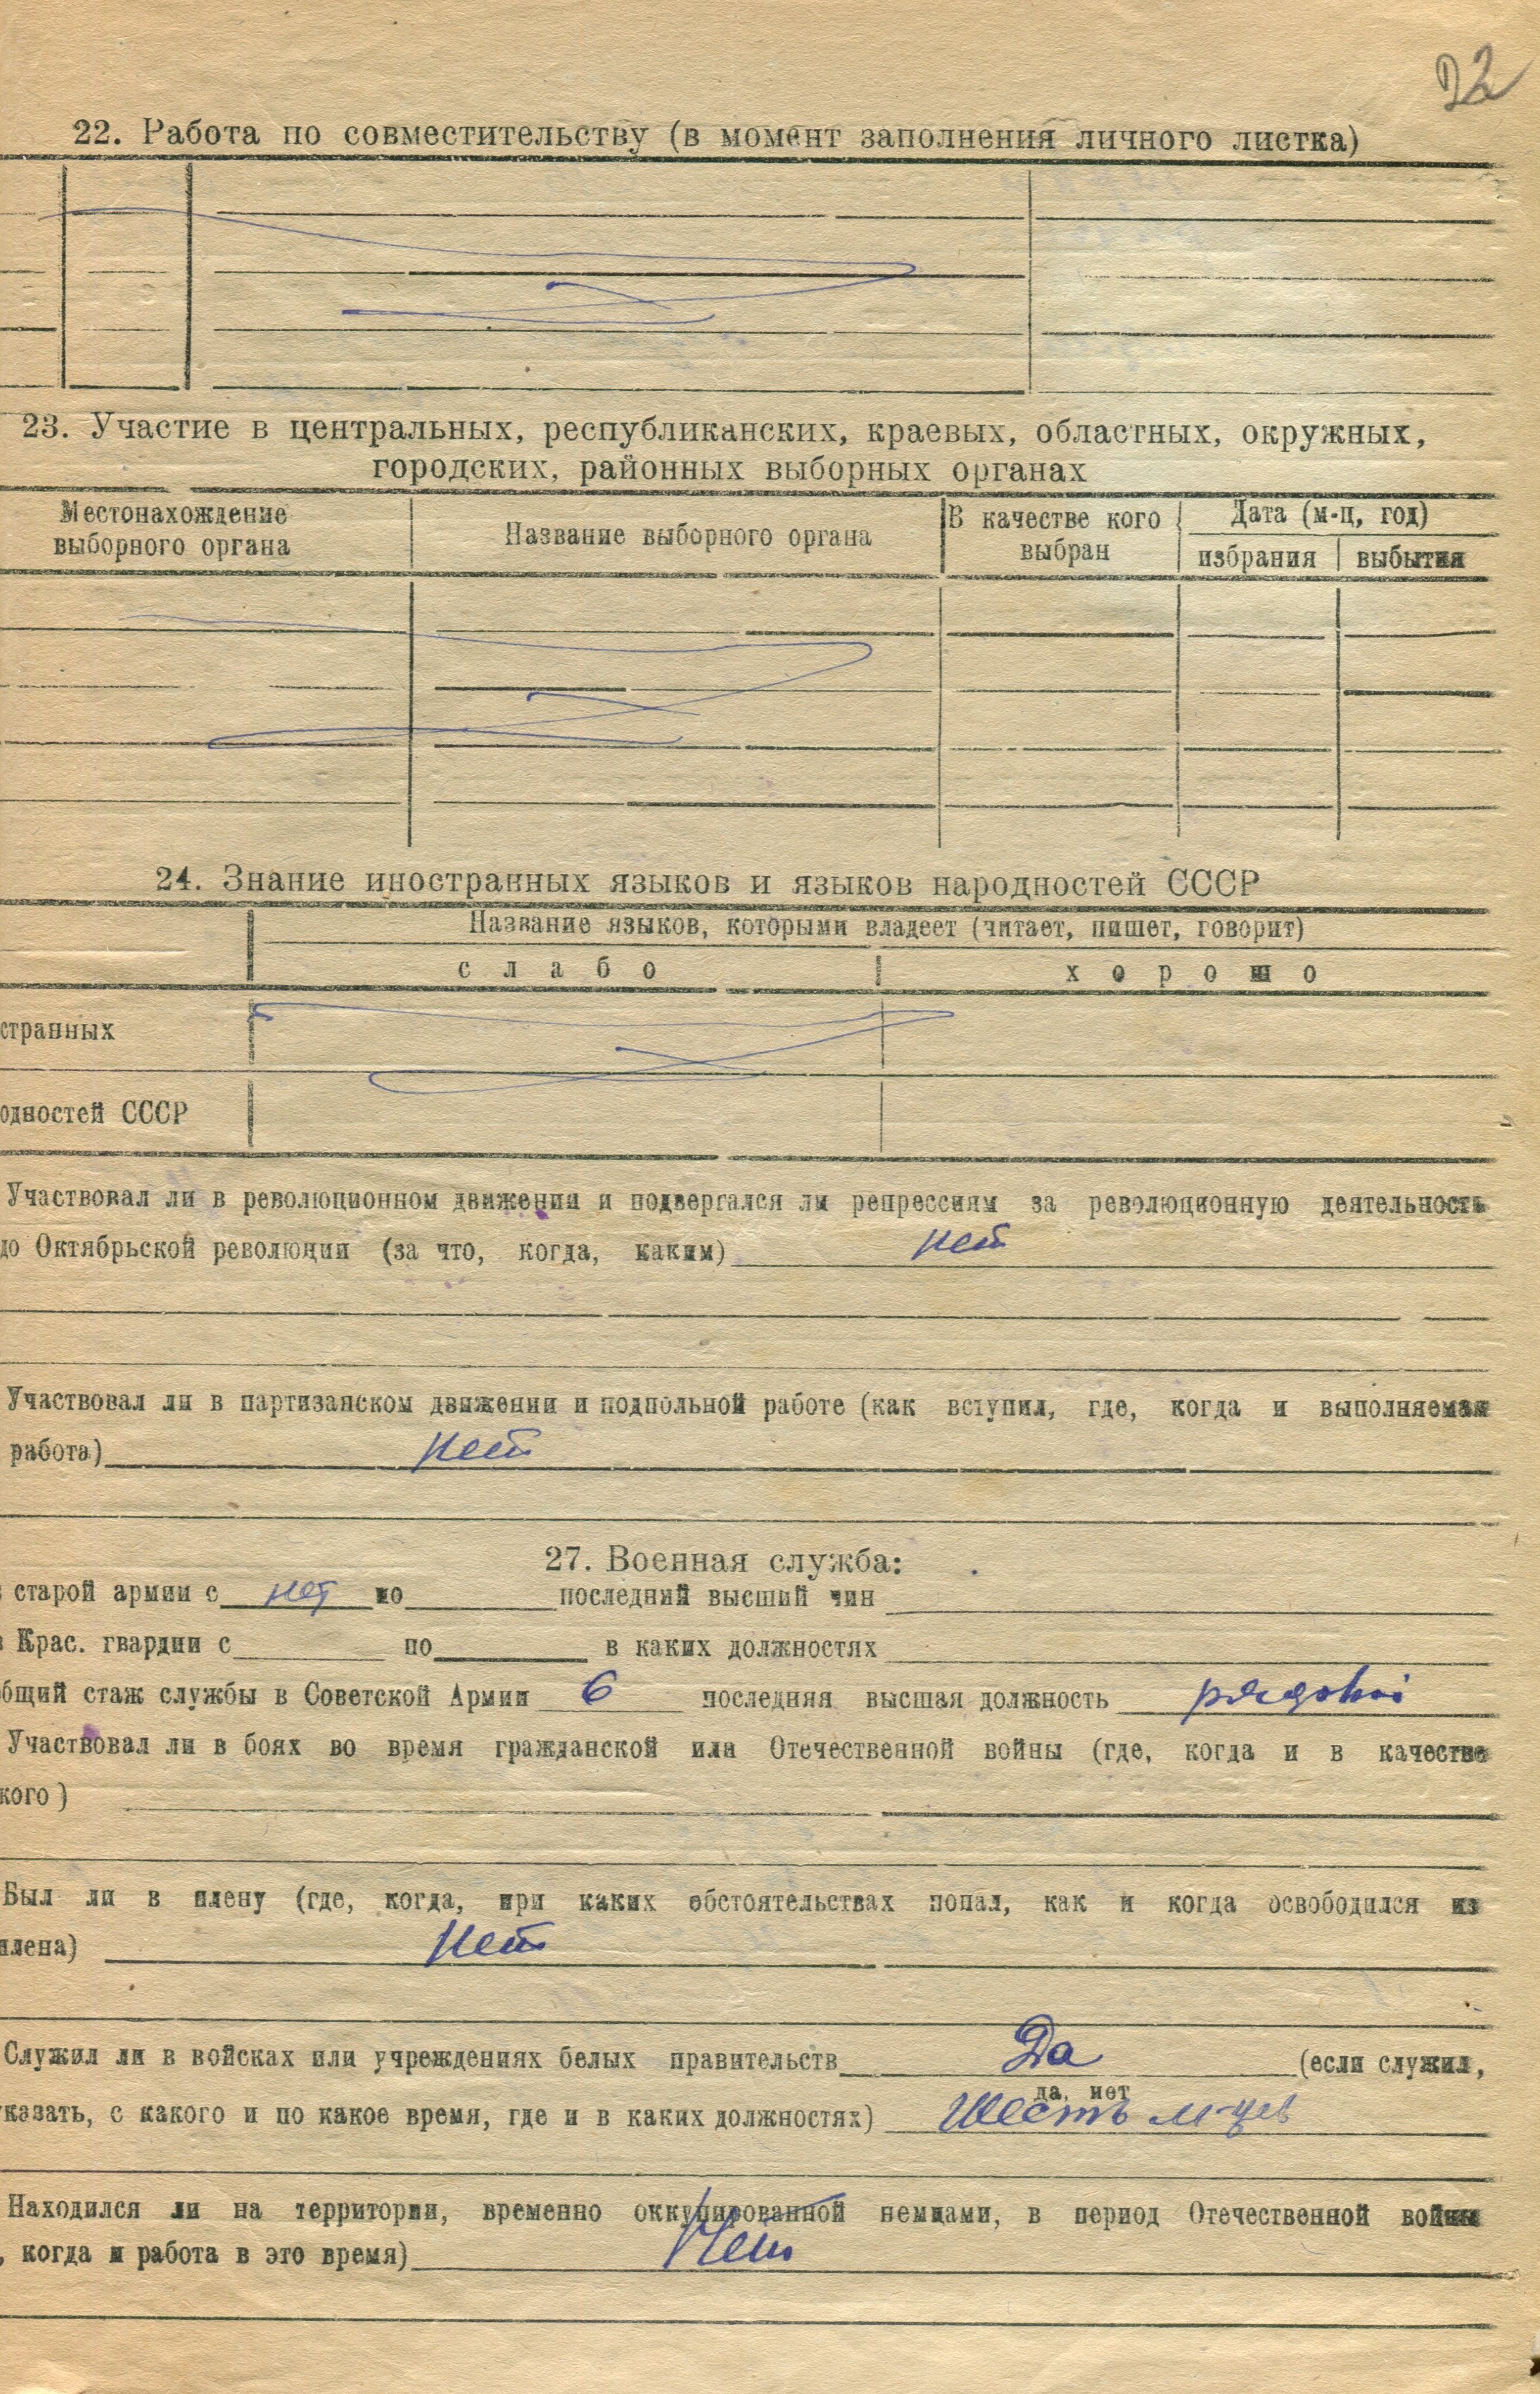 22
22. Работа по совместительству (в момент заполнения личного листка)
23. Участие в центральных, республиканских, краевых, областных, окружных,
городских, районных выборных органах
Местонахождение выборного органа
Название выборного органа
В качестве кого выбран
Дата (м-ц, год)
избрания
выбытия
24. Знание иностранных языков и языков народностей СССР
Название языков, которыми владеет (читает, пишет, говорит)
слабо
хорошо
странных
одностей СССР
Участвовал ли в революционном движении и подвергался ли репрессиям за революционную деятельность
до Октябрьской революции (за что, когда, каким) нет
Участвовал ли в партизанском движении и подпольной работе (как вступил, где, когда и выполняемая
работа) нет
27. Военная служба:
старой армии с нет по последний высший чин
в Крас. гвардии с по в каких должностях
бщий стаж службы в Советской Армии 6 последняя высшая должность рядовой
Участвовал ли в боях во время гражданской или Отечественной войны (где, когда и в качестве
кого)
Был ли в плену (где, когда, при каких обстоятельствах попал, как и когда освободился из
плена) нет
Служил ли в войсках или учреждениях белых правительств Да (если служил,
да, нет
казать, с какого и по какое время, где и в каких должностях) Шесть м-цев
Находился ли на территории, временно оккупированной немцами, в период Отечественной войны
, когда и работа в это время) Нет